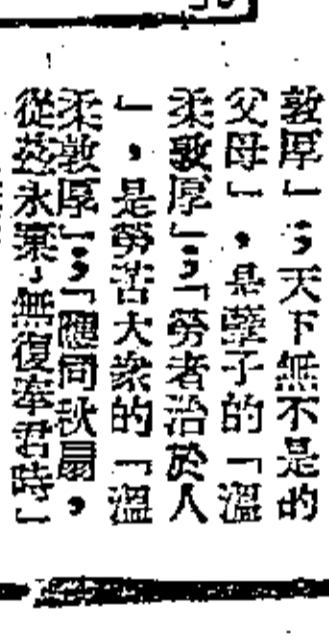 敦厚」；天下無不是的
父母」，是孽子的「溫
柔敦厚」；「勞者治於人
」，是勞苦大衆的「溫
柔敦厚」；「應同秋扇，
從茲永棄，無復奉君時」